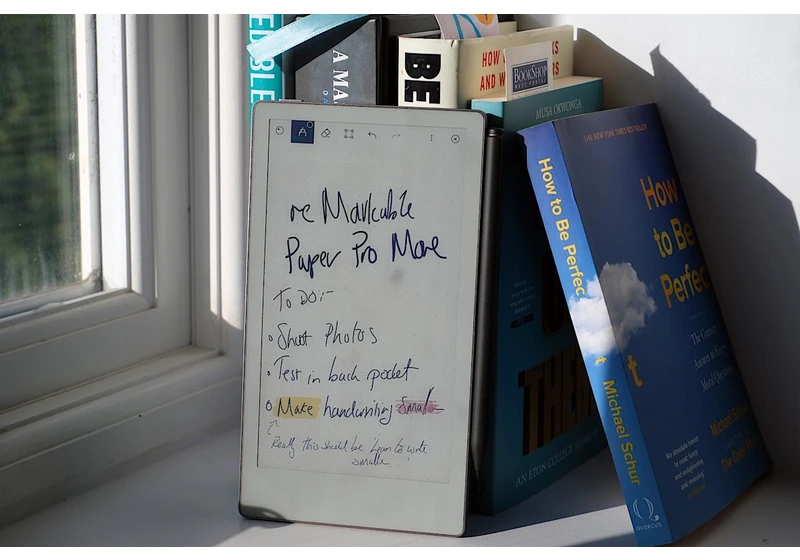 EDIBLE
A MA
DA
BE
HOW
AND W
RS
KS
BOOKSHOP
WEST PORTAL
MUSA OKWONGA
re Markable
Paper Pro Move
To DO:-
Shoot Photos
Test in back pocket
Make handwriting Smaller
Really this should be learn to write
smaller
THEM
AN ETON COLLEGE MEMOIR
How to Be Perfect
Michael Schur
QUERCUS
THE NEW YORK TIMES BESTSELLER
How
to Be
Perfec
t
The Correct
Answer to Every
Moral Question
Michael Schur
The Good